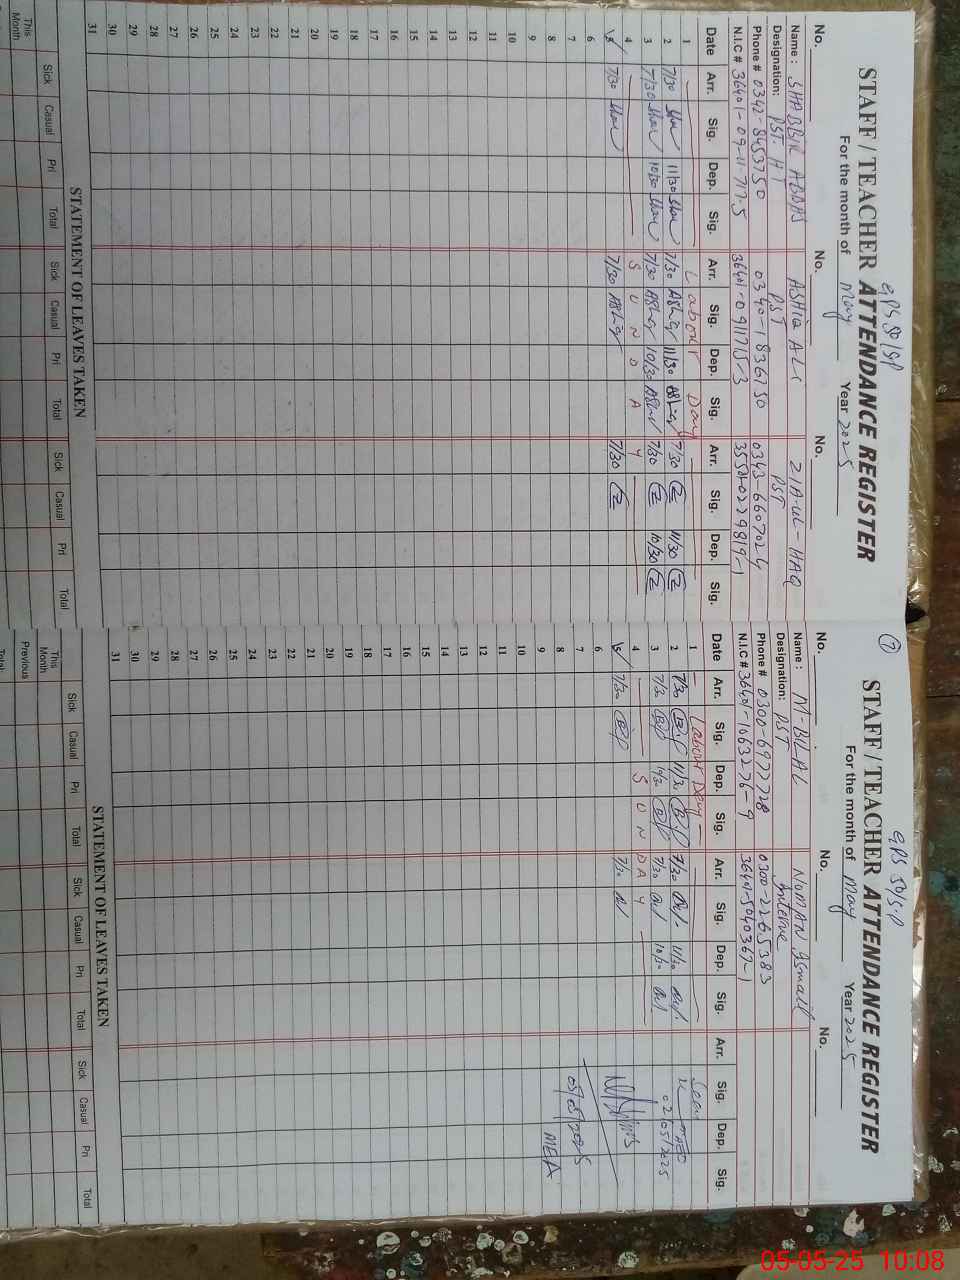 GPS 50/SP
STAFF / TEACHER ATTENDANCE REGISTER
For the month of May Year 2025
No. No. No.
Name : SHABBIR ABBAS ASHIQ ALI ZIA-UL-HAQ
Designation: PST. HT PST PST
Phone # 0342-8453750 0340-1836150 0343-6607024
N.I.C # 36401-09-11-717-5 36401-0911715-3
Date Arr. Sig. Dep. Sig. Arr. Sig. Dep. Sig. Arr. Sig. Dep. Sig.
1 Labour Day
2 7/30 11/30 7/30 Ashiq 11/30 Ashiq 7/30 Z 11/30 Z
3 7/30 10/30 7/30 Ashiq 10/30 Ashiq 7/30 Z 10/30 Z
4 S U N D A Y
5 7/30 7/30 Ashiq 7/30 Z
6
7
8
9
10
11
12
13
14
15
16
17
18
19
20
21
22
23
24
25
26
27
28
29
30
31
STATEMENT OF LEAVES TAKEN
Sick Casual Pri Total Sick Casual Pri Total Sick Casual Pri Total
This Month
7
GPS 50/S.P
STAFF / TEACHER ATTENDANCE REGISTER
For the month of May Year 2025
No. No. No.
Name : M-BILAL NOMAN Ismail
Designation: PST Interne
Phone # 0300-6977728 0300-2265383
N.I.C # 36401-1063276-9 36401-5040367-1
Date Arr. Sig. Dep. Sig. Arr. Sig. Dep. Sig. Arr. Sig. Dep. Sig.
1 Labour Day
2 7/30 11/30 7/30 11/30 02/05/2025
3 7/30 10/30 7/30 10/30
4 S U N D A Y
5 7/30 7/30
6
7 05/05/2025
8 MEA
9
10
11
12
13
14
15
16
17
18
19
20
21
22
23
24
25
26
27
28
29
30
31
STATEMENT OF LEAVES TAKEN
Sick Casual Pri Total Sick Casual Pri Total Sick Casual Pri Total
This Month
Previous
Total:
05-05-25 10:08